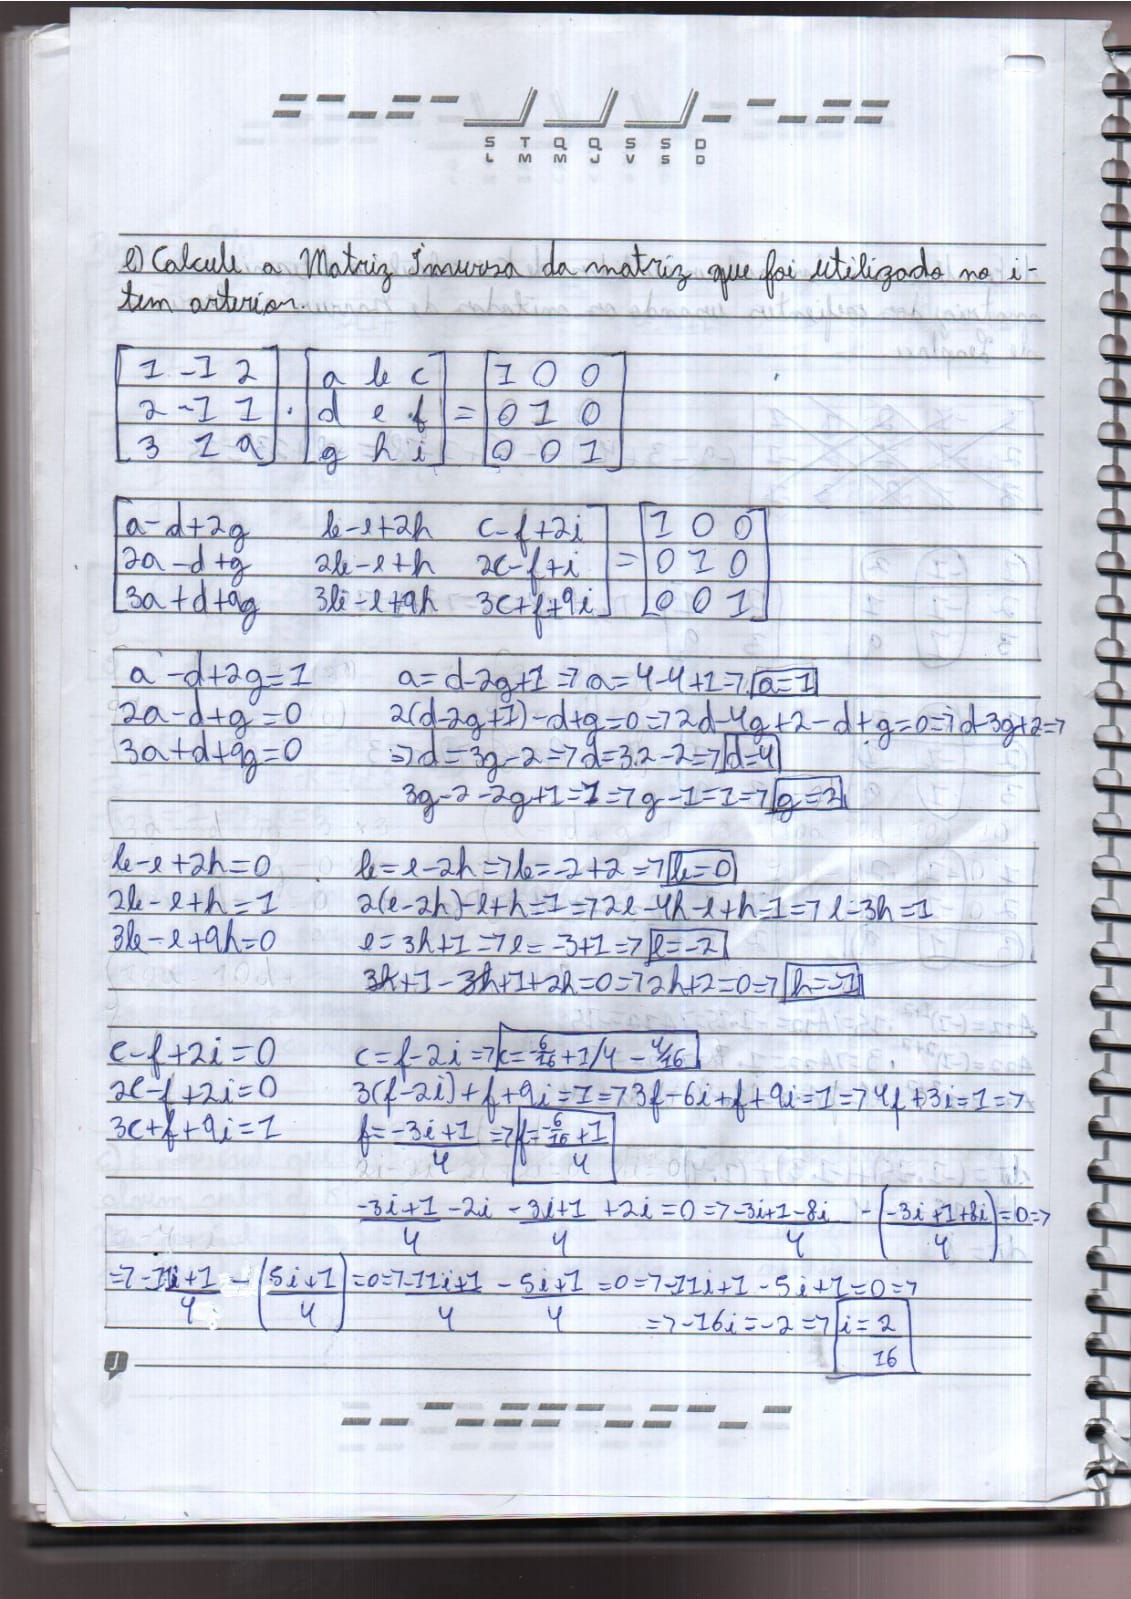 S T Q Q S S D
L M M J V S D
e) Calcule a Matriz Inversa da matriz que foi utilizado no i-
tem arterior.
[1 -1 2] · [a b c] = [1 0 0]
[2 -1 1] [d e f] [0 1 0]
[3 1 9] [g h i] [0 0 1]
[a-d+2g b-e+2h c-f+2i] = [1 0 0]
[2a-d+g 2b-e+h 2c-f+i] [0 1 0]
[3a+d+9g 3b-e+9h 3c+f+9i] [0 0 1]
a-d+2g=1 a=d-2g+1 => a=4-4+1 => a=1
2a-d+g=0 2(d-2g+1)-d+g=0 => 2d-4g+2-d+g=0 => d-3g+2 =>
3a+d+9g=0 => d=3g-2 => d=3.2-2 => d=4
3g-2-2g+1=1 => g-1=1 => g=2
b-e+2h=0 b=e-2h => b=-2+2 => b=0
2b-e+h=1 2(e-2h)-e+h=1 => 2e-4h-e+h=1 => e-3h=1
3b-e+9h=0 e=3h+1 => e=-3+1 => e=-2
3h+1-3h+1+2h=0 => 2h+2=0 => h=-1
c-f+2i=0 c=f-2i => c=-6/16+1/4-4/16
2c-f+2i=0 3(f-2i)+f+9i=1 => 3f-6i+f+9i=1 => 4f+3i=1 =>
3c+f+9i=1 f=-3i+1/4 => f=-6/16+1/4
-3i+1/4 -2i -3i+1/4 +2i=0 => -3i+1-8i/4 -(-3i+1+8i/4)=0 =>
=> -11i+1/4 -(5i+1/4)=0 => -11i+1/4 - 5i+1/4 =0 => -11i+1-5i+1=0 =>
=> -16i=-2 => i=2/16